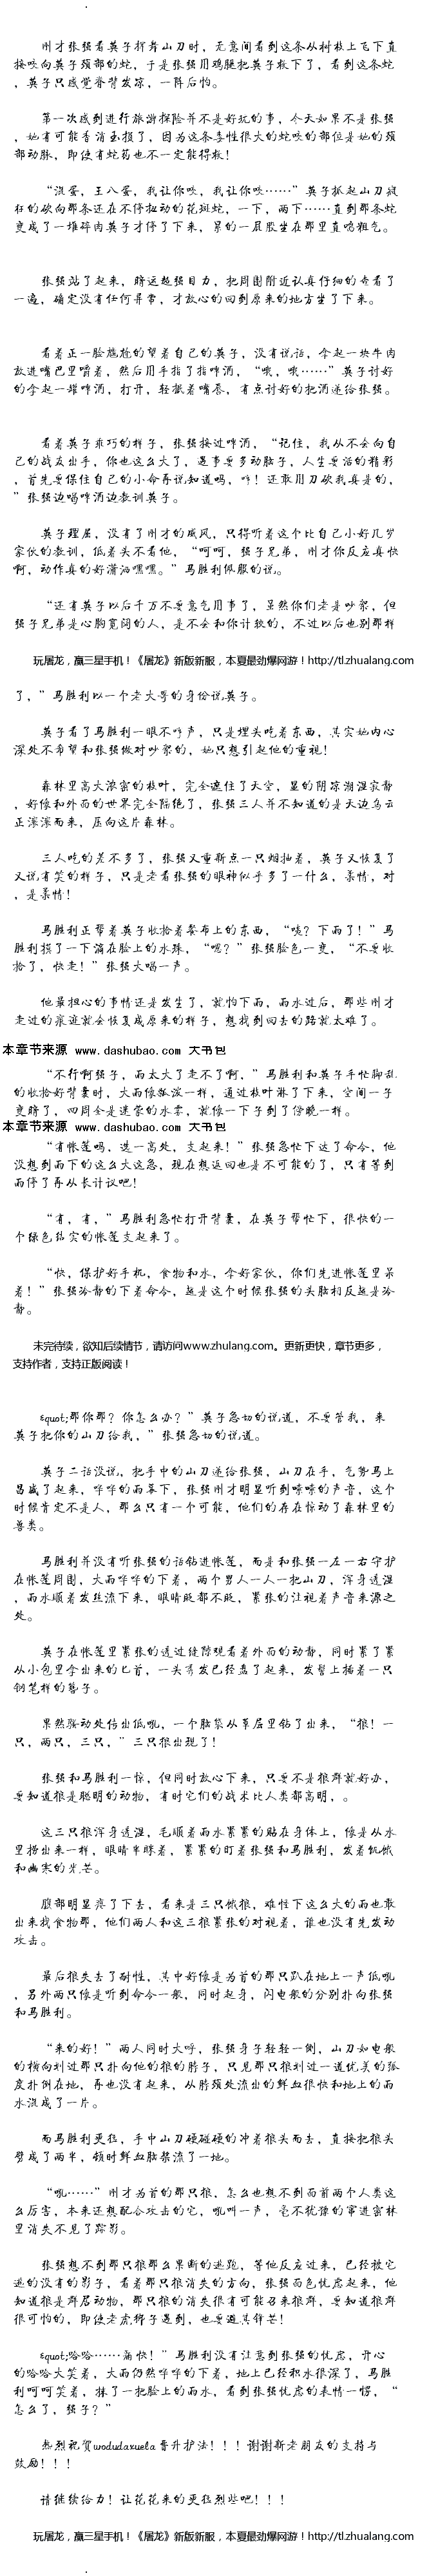 刚才张强看英子挥舞山刀时，无意间看到这条从树枝上飞下直
接咬向英子颈部的蛇，于是张强用鸡腿把英子救下了，看到这条蛇
，英子只感觉脊背发凉，一阵后怕。
第一次感到进行旅游探险并不是好玩的事，今天如果不是张强
，她有可能香消玉损了，因为这条毒性很大的蛇咬的部位是她的颈
部动脉，即使有蛇药也不一定能得救！
“混蛋，王八蛋，我让你咬，我让你咬……”英子抓起山刀疯
狂的砍向那条还在不停扭动的花斑蛇，一下，两下……直到那条蛇
变成了一堆碎肉英子才停了下来，累的一屁股坐在那里直喘粗气。
张强站了起来，睁远超强目力，把周围附近认真仔细的查看了
一遍，确定没有任何异常，才放心的回到原来的地方坐了下来。
看着正一脸尴尬的望着自己的英子，没有说话，拿起一块牛肉
放进嘴巴里嚼着，然后用手指了指啤酒，“哦，哦……”英子讨好
的拿起一罐啤酒，打开，轻撅着嘴唇，有点讨好的把酒递给张强。
看着英子乖巧的样子，张强接过啤酒，“记住，我从不会向自
己的战友出手，你也这么大了，遇事要多动脑子，人生要活的精彩
，首先要保住自己的小命再说知道吗，哼！还敢用刀砍我真是的，
”张强边喝啤酒边教训英子。
英子理屈，没有了刚才的威风，只得听着这个比自己小好几岁
家伙的教训，低着头不看他，“呵呵，强子兄弟，刚才你反应真快
啊，动作真的好潇洒嘿嘿。”马胜利佩服的说。
“还有英子以后千万不要意气用事了，虽然你们老是吵架，但
强子兄弟是心胸宽阔的人，是不会和你计较的，不过以后也别那样
玩屠龙，赢三星手机！《屠龙》新版新服，本夏最劲爆网游！http://tl.zhualang.com
了，”马胜利以一个老大哥的身份说英子。
英子看了马胜利一眼不吭声，只是埋头吃着东西，其实她内心
深处不希望和张强做对吵架的，她只想引起他的重视！
森林里高大浓密的枝叶，完全遮住了天空，显的阴凉潮湿寂静
，好像和外面的世界完全隔绝了，张强三人并不知道的是天边乌云
正滚滚而来，压向这片森林。
三人吃的差不多了，张强又重新点一只烟抽着，英子又恢复了
又说有笑的样子，只是老看张强的眼神似乎多了一什么，柔情，对
，是柔情！
马胜利正帮着英子收拾着餐布上的东西，“咦？下雨了！”马
胜利摸了一下滴在脸上的水珠，“嗯？”张强脸色一变，“不要收
拾了，快走！”张强大喝一声。
他最担心的事情还是发生了，就怕下雨，雨水过后，那些刚才
走过的痕迹就会恢复成原来的样子，想找到回去的路就太难了。
本章节来源 www.dashubao.com 大书包
“不行啊强子，雨太大了走不了啊，”马胜利和英子手忙脚乱
的收拾好背囊时，大雨像瓢泼一样，通过枝叶淋了下来，空间一子
变暗了，四周全是迷蒙的水雾，就像一下子到了傍晚一样。
本章节来源 www.dashubao.com 大书包
“有帐篷吗，选一高处，支起来！”张强急忙下达了命令，他
没想到雨下的这么大这急，现在想返回也是不可能的了，只有等到
雨停了再从长计议吧！
“有，有，”马胜利急忙打开背囊，在英子帮忙下，很快的一
个绿色结实的帐篷支起来了。
“快，保护好手机，食物和水，拿好家伙，你们先进帐篷里呆
着！”张强冷静的下着命令，越是这个时候张强的头脑相反越是冷
静。
未完待续，欲知后续情节，请访问www.zhulang.com。更新更快，章节更多，
支持作者，支持正版阅读！
&quot;那你那？你怎么办？”英子急切的说道，不要管我，来
英子把你的山刀给我，”张强急切的说道。
英子二话没说，把手中的山刀递给张强，山刀在手，气势马上
昌盛了起来，哗哗的雨幕下，张强刚才明显听到嚓嚓的声音，这个
时候肯定不是人，那么只有一个可能，他们的存在惊动了森林里的
兽类。
马胜利并没有听张强的话钻进帐篷，而是和张强一左一右守护
在帐篷周围，大雨哗哗的下着，两个男人一人一把山刀，浑身透湿
，雨水顺着发丝流下来，眼睛眨都不眨，紧张的注视着声音来源之
处。
英子在帐篷里紧张的透过缝隙观看着外面的动静，同时紧了紧
从小包里拿出来的匕首，一头秀发已经盘了起来，发髻上插着一只
钢笔样的簪子。
果然骚动处传出低吼，一个脑袋从草层里钻了出来，“狼！一
只，两只，三只，”三只狼出现了！
张强和马胜利一惊，但同时放心下来，只要不是狼群就好办，
要知道狼是聪明的动物，有时它们的战术比人类都高明，。
这三只狼浑身透湿，毛顺着雨水紧紧的贴在身体上，像是从水
里捞出来一样，眼睛半眯着，紧紧的盯着张强和马胜利，发着饥饿
和幽寒的光芒。
腹部明显疼了下去，看来是三只饿狼，难性下这么大的雨也敢
出来找食物那，他们两人和这三狼紧张的对视着，谁也没有先发动
攻击。
最后狼失去了耐性，其中好像是为首的那只趴在地上一声低吼
，另外两只像是听到命令一般，同时起身，闪电般的分别扑向张强
和马胜利。
“来的好！”两人同时大呼，张强身子轻轻一侧，山刀如电般
的横向划过那只扑向他的狼的脖子，只见那只狼划过一道优美的弧
度扑倒在地，再也没有起来，从脖颈处流出的鲜血很快和地上的雨
水混成了一片。
而马胜利更狂，手中山刀硬碰硬的冲着狼头而去，直接把狼头
劈成了两半，顿时鲜血脑浆流了一地。
“吼……”刚才为首的那只狼，怎么也想不到面前两个人类这
么厉害，本来还想配合攻击的它，吼叫一声，毫不犹豫的窜进密林
里消失不见了踪影。
张强想不到那只狼那么果断的逃跑，等他反应过来，已经被它
逃的没有的影子，看着那只狼消失的方向，张强面色忧虑起来，他
知道狼是群居动物，那只狼的消失很有可能召来狼群，要知道狼群
很可怕的，即使老虎狮子遇到，也要避其锋芒！
&quot;哈哈……痛快！”马胜利没有注意到张强的忧虑，开心
的哈哈大笑着，大雨仍然哗哗的下着，地上已经积水很深了，马胜
利呵呵笑着，抹了一把脸上的雨水，看到张强忧虑的表情一愣，“
怎么了，强子？”
热烈祝贺wodudaxuela晋升护法！！！谢谢新老朋友的支持与
鼓励！！！
请继续给力！让花花来的更狂烈些吧！！！
玩屠龙，赢三星手机！《屠龙》新版新服，本夏最劲爆网游！http://tl.zhualang.com